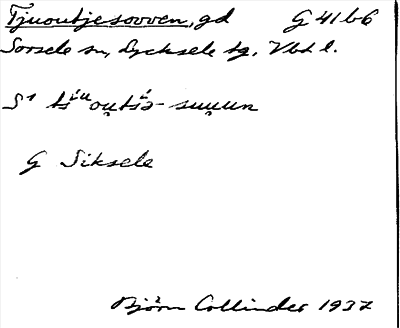 Tjuoutjesovven, gd G 41 b 6
Sorsele sn, Lycksele tg, Vbd l.
S¹
G Siksele
Björn Collinder 1937